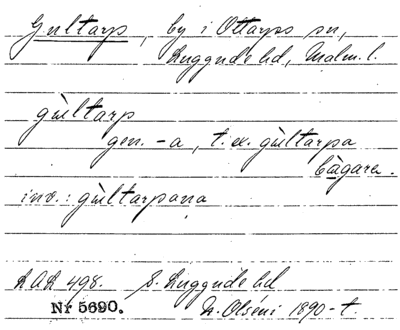 Gultarp, by i Ottarps sn,
Luggude hd, Malm. l.
gùltarp
gen. -a, t. ex. gùltarpa
bàgara.
inv.: gùltarpana
LAL 498. S. Luggude hd
Nr 5690. N. Olséni 1890-t.